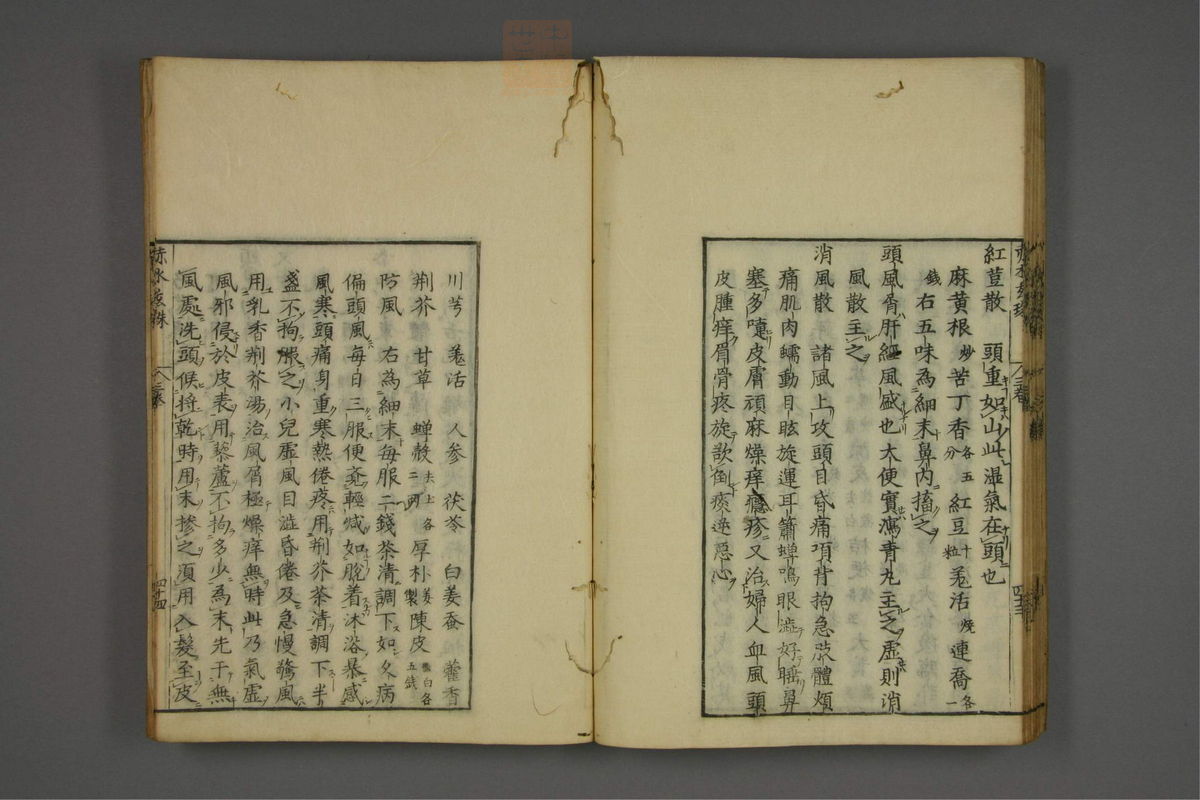 紅荳散 頭重如山此湿氣在頭也
麻黄根炒苦丁香各五分紅豆十粒羗活燒連喬各一
錢右五味為細末鼻内搐之
頭風屑肝經風盛也大便實瀉青丸主之虛則消
風散主之
消風散 諸風上攻頭目昏痛項背拘急蒸體煩
痛肌肉蠕動目眩旋運耳簫蟬鳴眼澁好睡鼻
塞多嚏皮膚頑麻燥痒癮疹又治婦人血風頭
皮腫痒眉骨疼旋欲倒痰逆惡心
川芎 羗活 人参 茯苓 白姜蚕 藿香
荆芥 甘草 蟬殼去土各二兩厚朴姜製陳皮去白各五錢
防風 右為細末每服二錢茶清調下如久病
偏頭風每日三服便覺輕减如脫着沐浴暴感
風寒頭痛身重寒熱倦疼用荆芥茶清調下半
盞不拘服之小兒虛風目澁昏倦及急慢驚風
用乳香荆芥湯治風屑極燥痒無時此乃氣虛
風邪侵於皮表用藜蘆不拘多少為末先于無
風處洗頭候將乾時用末摻之須用入髮至皮
赤水玄珠
八三卷
四十四